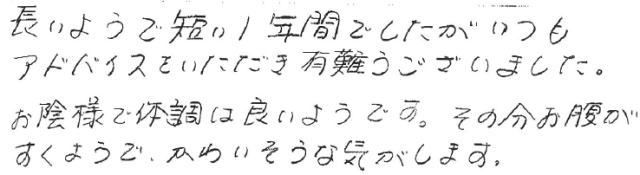 長いようで短い1年間でしたがいつも
アドバイスをいただき有難うございました。
お陰様で体調は良いようです。その分お腹が
すくようで、かわいそうな気がします。